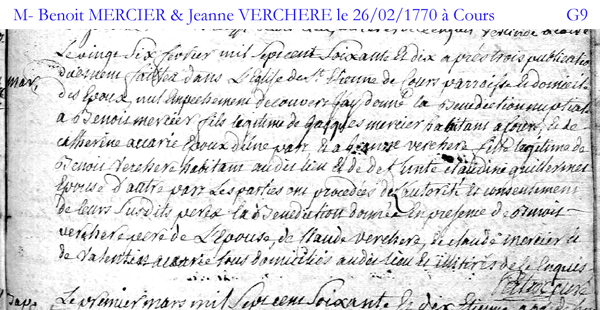 M- Benoit MERCIER & Jeanne VERCHERE le 26/02/1770 à Cours G9
Le vingt Six fevrier mil Sept cent Soixante et dix apres trois publication
duement faittes dans L'Eglise de St Etienne de Cours parroisse et domicile
mar,
des Epoux, nul Empechement decouvert jay donné la Benediction nuptial
a Benois mercier fils legitime de jacques mercier habitant a Cours, et de
catherine accarie Epoux d'une part et a jeanne verchere fille legitime de
Benois verchere habitant audit lieu et de defunte claudine guillermet
Epouse d'autre part Les parties ont procedées de l'autorité et consentiment
de leurs Susdits peres la Benediction donnée En presence de Benois
verchere pere de L'Epouse, de Claude verchere, de claude mercier et
de Valentin accarie tous domiciliés audit lieu et illitirés de ce Enquis
Le premier mars mil Sept cent Soixante et dix Etienne